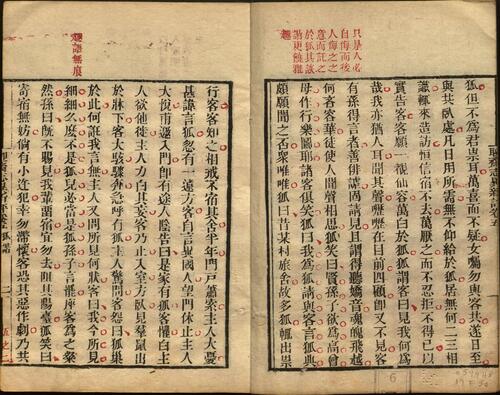 只是人必
自侮而後
人侮之之
意而託之
於狐其詼
諧更饒雅
趣
狐但不為君祟耳萬喜而不疑狐囑勿與客共遂日至
與共臥處凡日用所需無不仰給於狐居無何二三相
識輒來造訪恒信宿不去萬厭之而不忍拒不得已以
實告客客願一覩仙容萬白於狐狐謂客曰見我何為
哉我亦猶人耳聞其聲嚦嚦在目前四顧即又不見客
有孫得言者善俳謔固請見且謂得聽嬌音魂魄飛越
何吝容華徒使人聞聲相思狐笑曰賢孫子欲為高曾
母作行樂圖耶諸客俱笑狐曰我為狐請與客言狐典
頗願聞之否眾唯唯狐曰昔某村旅舍故多狐輒出祟
趣語無痕
行客客知之相戒不宿其舍半年門戶蕭索主人大憂
甚諱言狐忽有一遠方客自言異國人望門休止主人
大悅甫邀入門即有途人陰告曰是家有狐客懼白主
人欲他徙主人力白其妄客乃止入室方臥見羣鼠出
於牀下客大駭驟奔急呼有狐主人驚問客怨曰狐巢
於此何誑我言無主人又問所見何狀客曰我今所見
細細么麼不是狐兒必當是狐孫子言罷座客為之粲
然孫曰既不賜見我輩留宿宜勿去阻其陽臺狐笑曰
寄宿無妨倘有小迕犯幸勿滯懷客恐其惡作劇乃共
狐諧